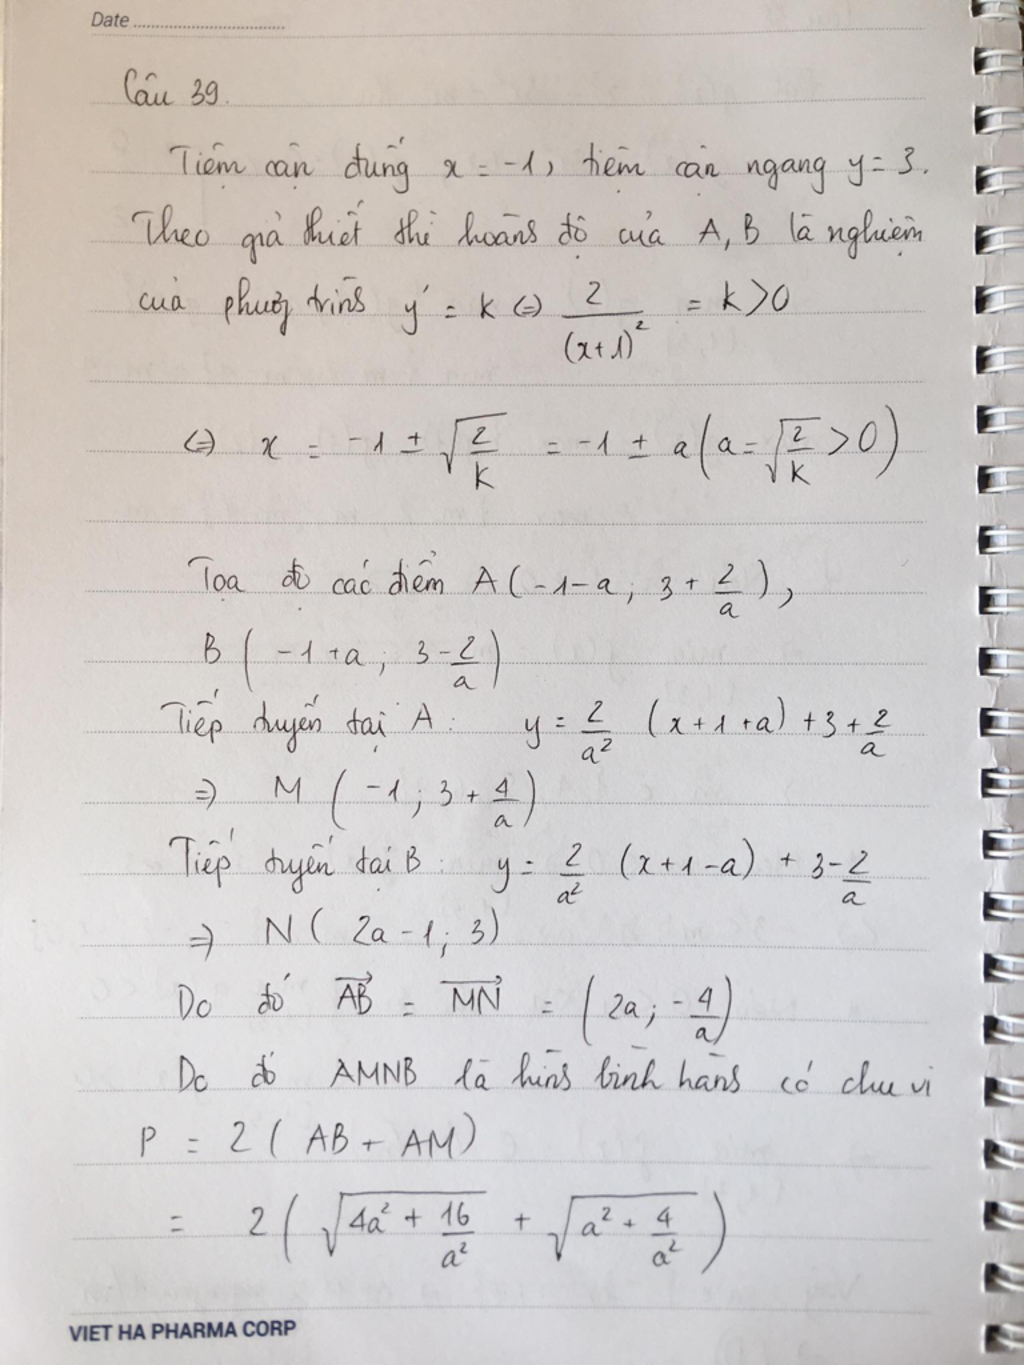 Date
Câu 39.
Tiệm cận đứng x = -1, tiệm cận ngang y = 3.
Theo giả thiết thì hoành độ của A, B là nghiệm
của phương trình y' = k ⇔ 2/(x+1)² = k > 0
⇔ x = -1 ± √(2/k) = -1 ± a (a = √(2/k) > 0)
Tọa độ các điểm A(-1-a; 3 + 2/a),
B(-1+a; 3 - 2/a)
Tiếp tuyến tại A: y = 2/a² (x+1+a) + 3 + 2/a
⇒ M(-1; 3 + 4/a)
Tiếp tuyến tại B: y = 2/a² (x+1-a) + 3 - 2/a
⇒ N(2a-1; 3)
Do đó AB→ = MN→ = (2a; -4/a)
Do đó AMNB là hình bình hành có chu vi
P = 2(AB + AM)
= 2(√(4a² + 16/a²) + √(a² + 4/a²))
VIET HA PHARMA CORP